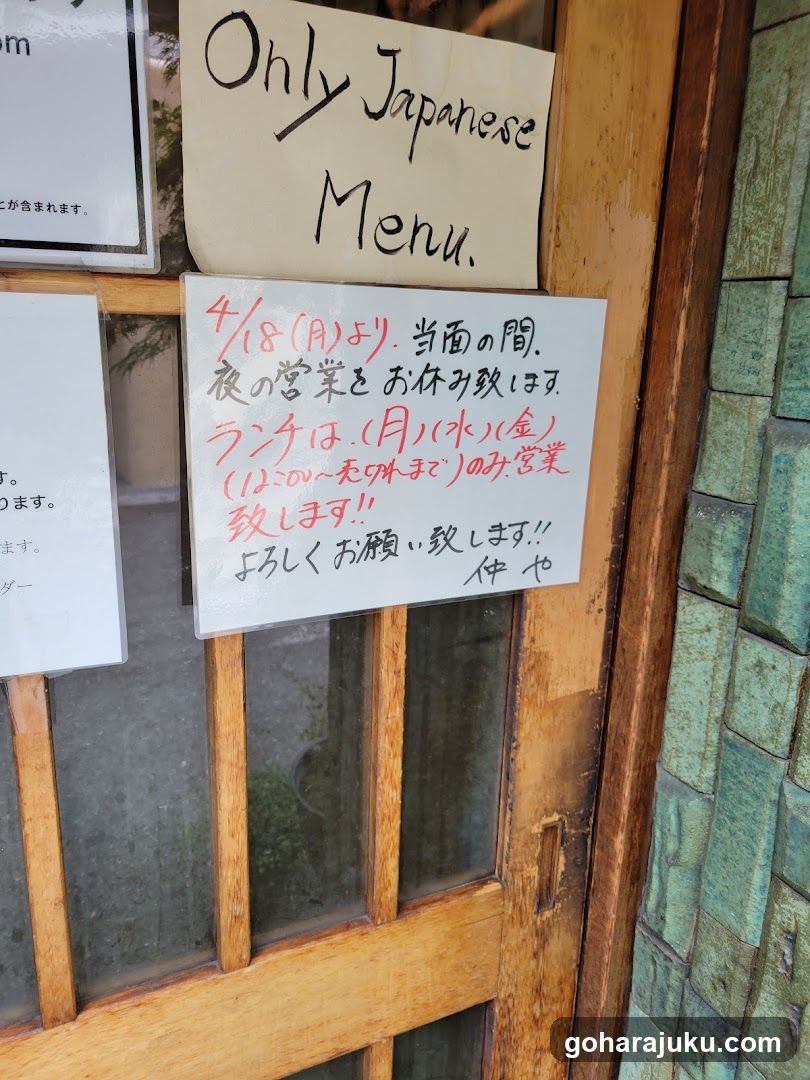 om
とが含まれます。
Only Japanese
Menu.
4/18(月)より、当面の間、
夜の営業をお休み致します。
ランチは、(月)(水)(金)
(12:00〜売切れまで)のみ、営業
致します!!
よろしくお願い致します!!
仲や
す。
ります。
ます。
ダー
goharajuku.com